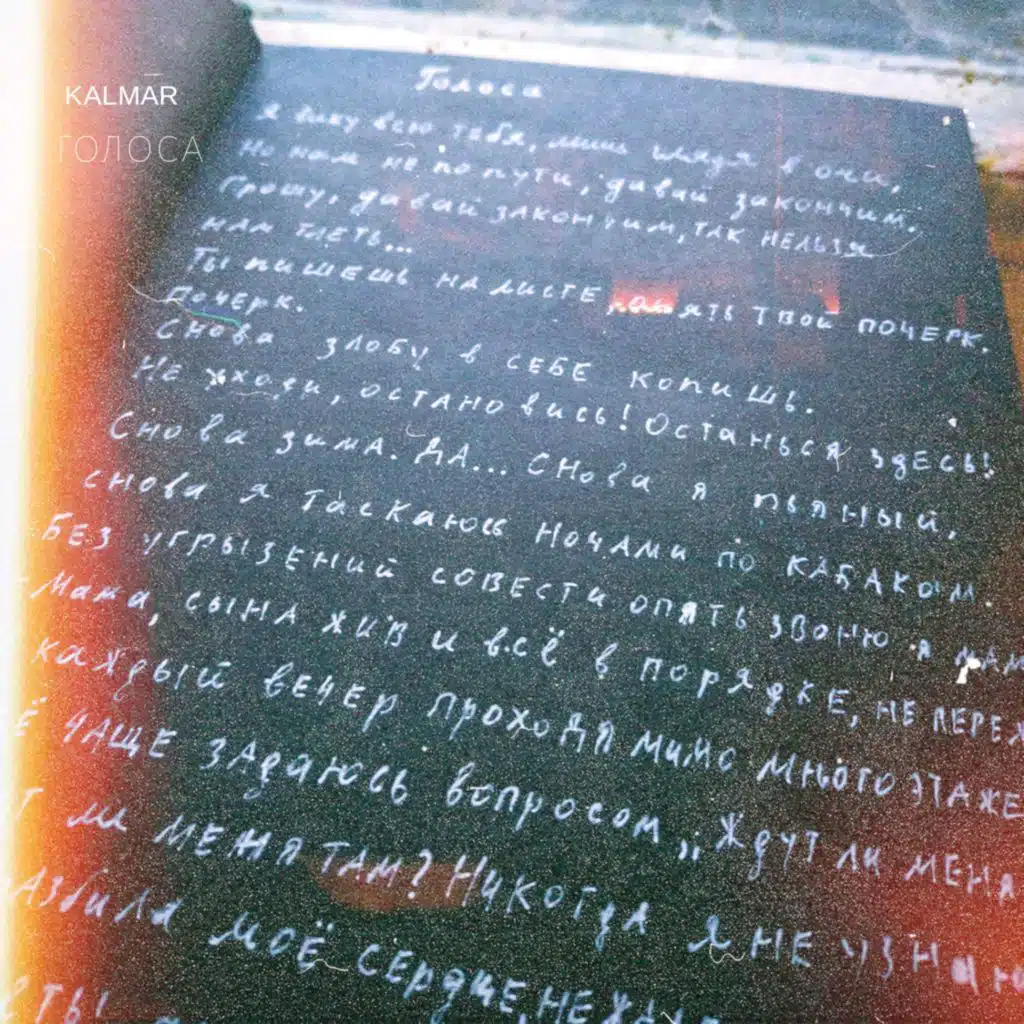 KALMAR
ГОЛОСА
Голоса
Я вижу всю тебя, лишь глядя в очи,
Но нам не по пути, давай закончим.
Прошу, давай закончим, так нельзя
нам тлеть...
Ты пишешь на листе, опять твой почерк.
почерк.
Снова злобу в себе копишь.
Не уходи, остановись! Останься здесь!
Снова зима. Да... снова я пьяный,
снова я таскаюсь ночами по кабакам
Без угрызений совести опять звоню я мам
Мама, сына жив и всё в порядке, не переж
каждый вечер проходя мимо многоэтаже
ё чаще задаюсь вопросом „Ждут ли меня
т ли меня там? Никогда я не узнаю
азбила моё сердце,
ты